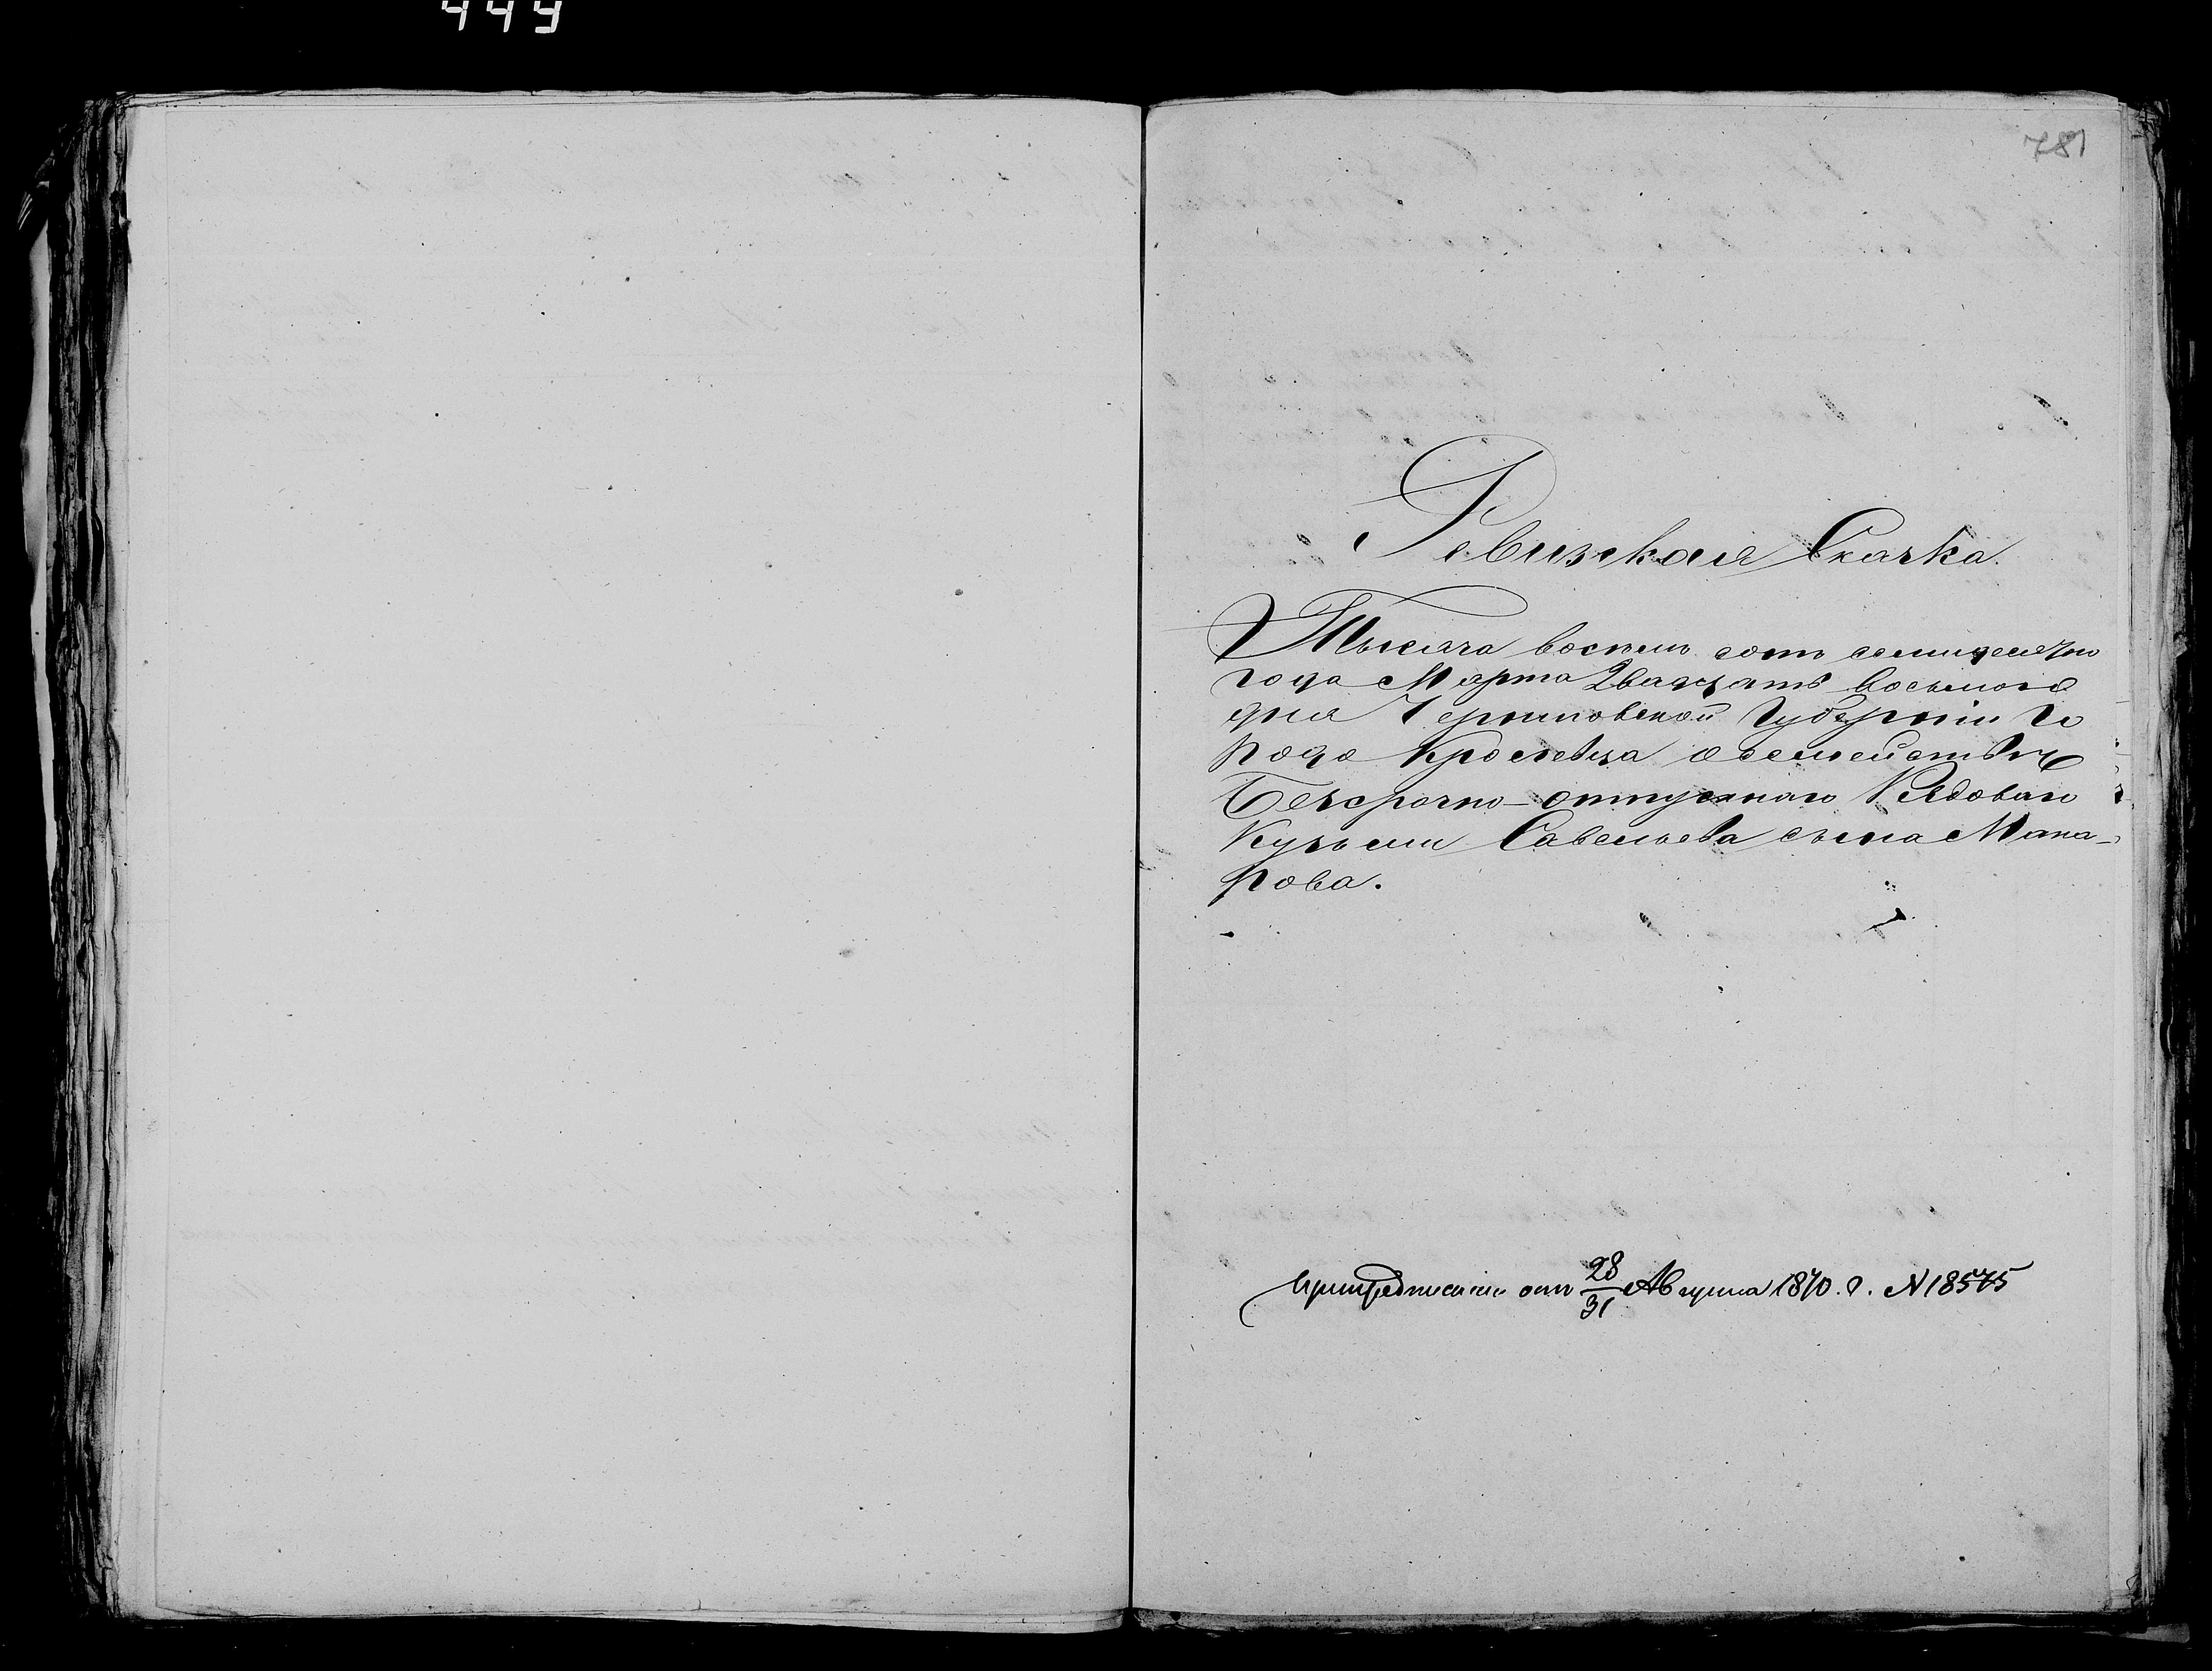 449
781
Ревизская Сказка.
Тысяча восемь сотъ семидесято
года Марта двадцать восьмого
дня Черниговской Губернiи Го
рода Кролевца о семействѣ
Безсрочно-отпускнаго Рядоваго
Кузьмы Савельева сына Мака-
рова.
При предписанiи отъ 28/31 Августа 1870. г. N 18575